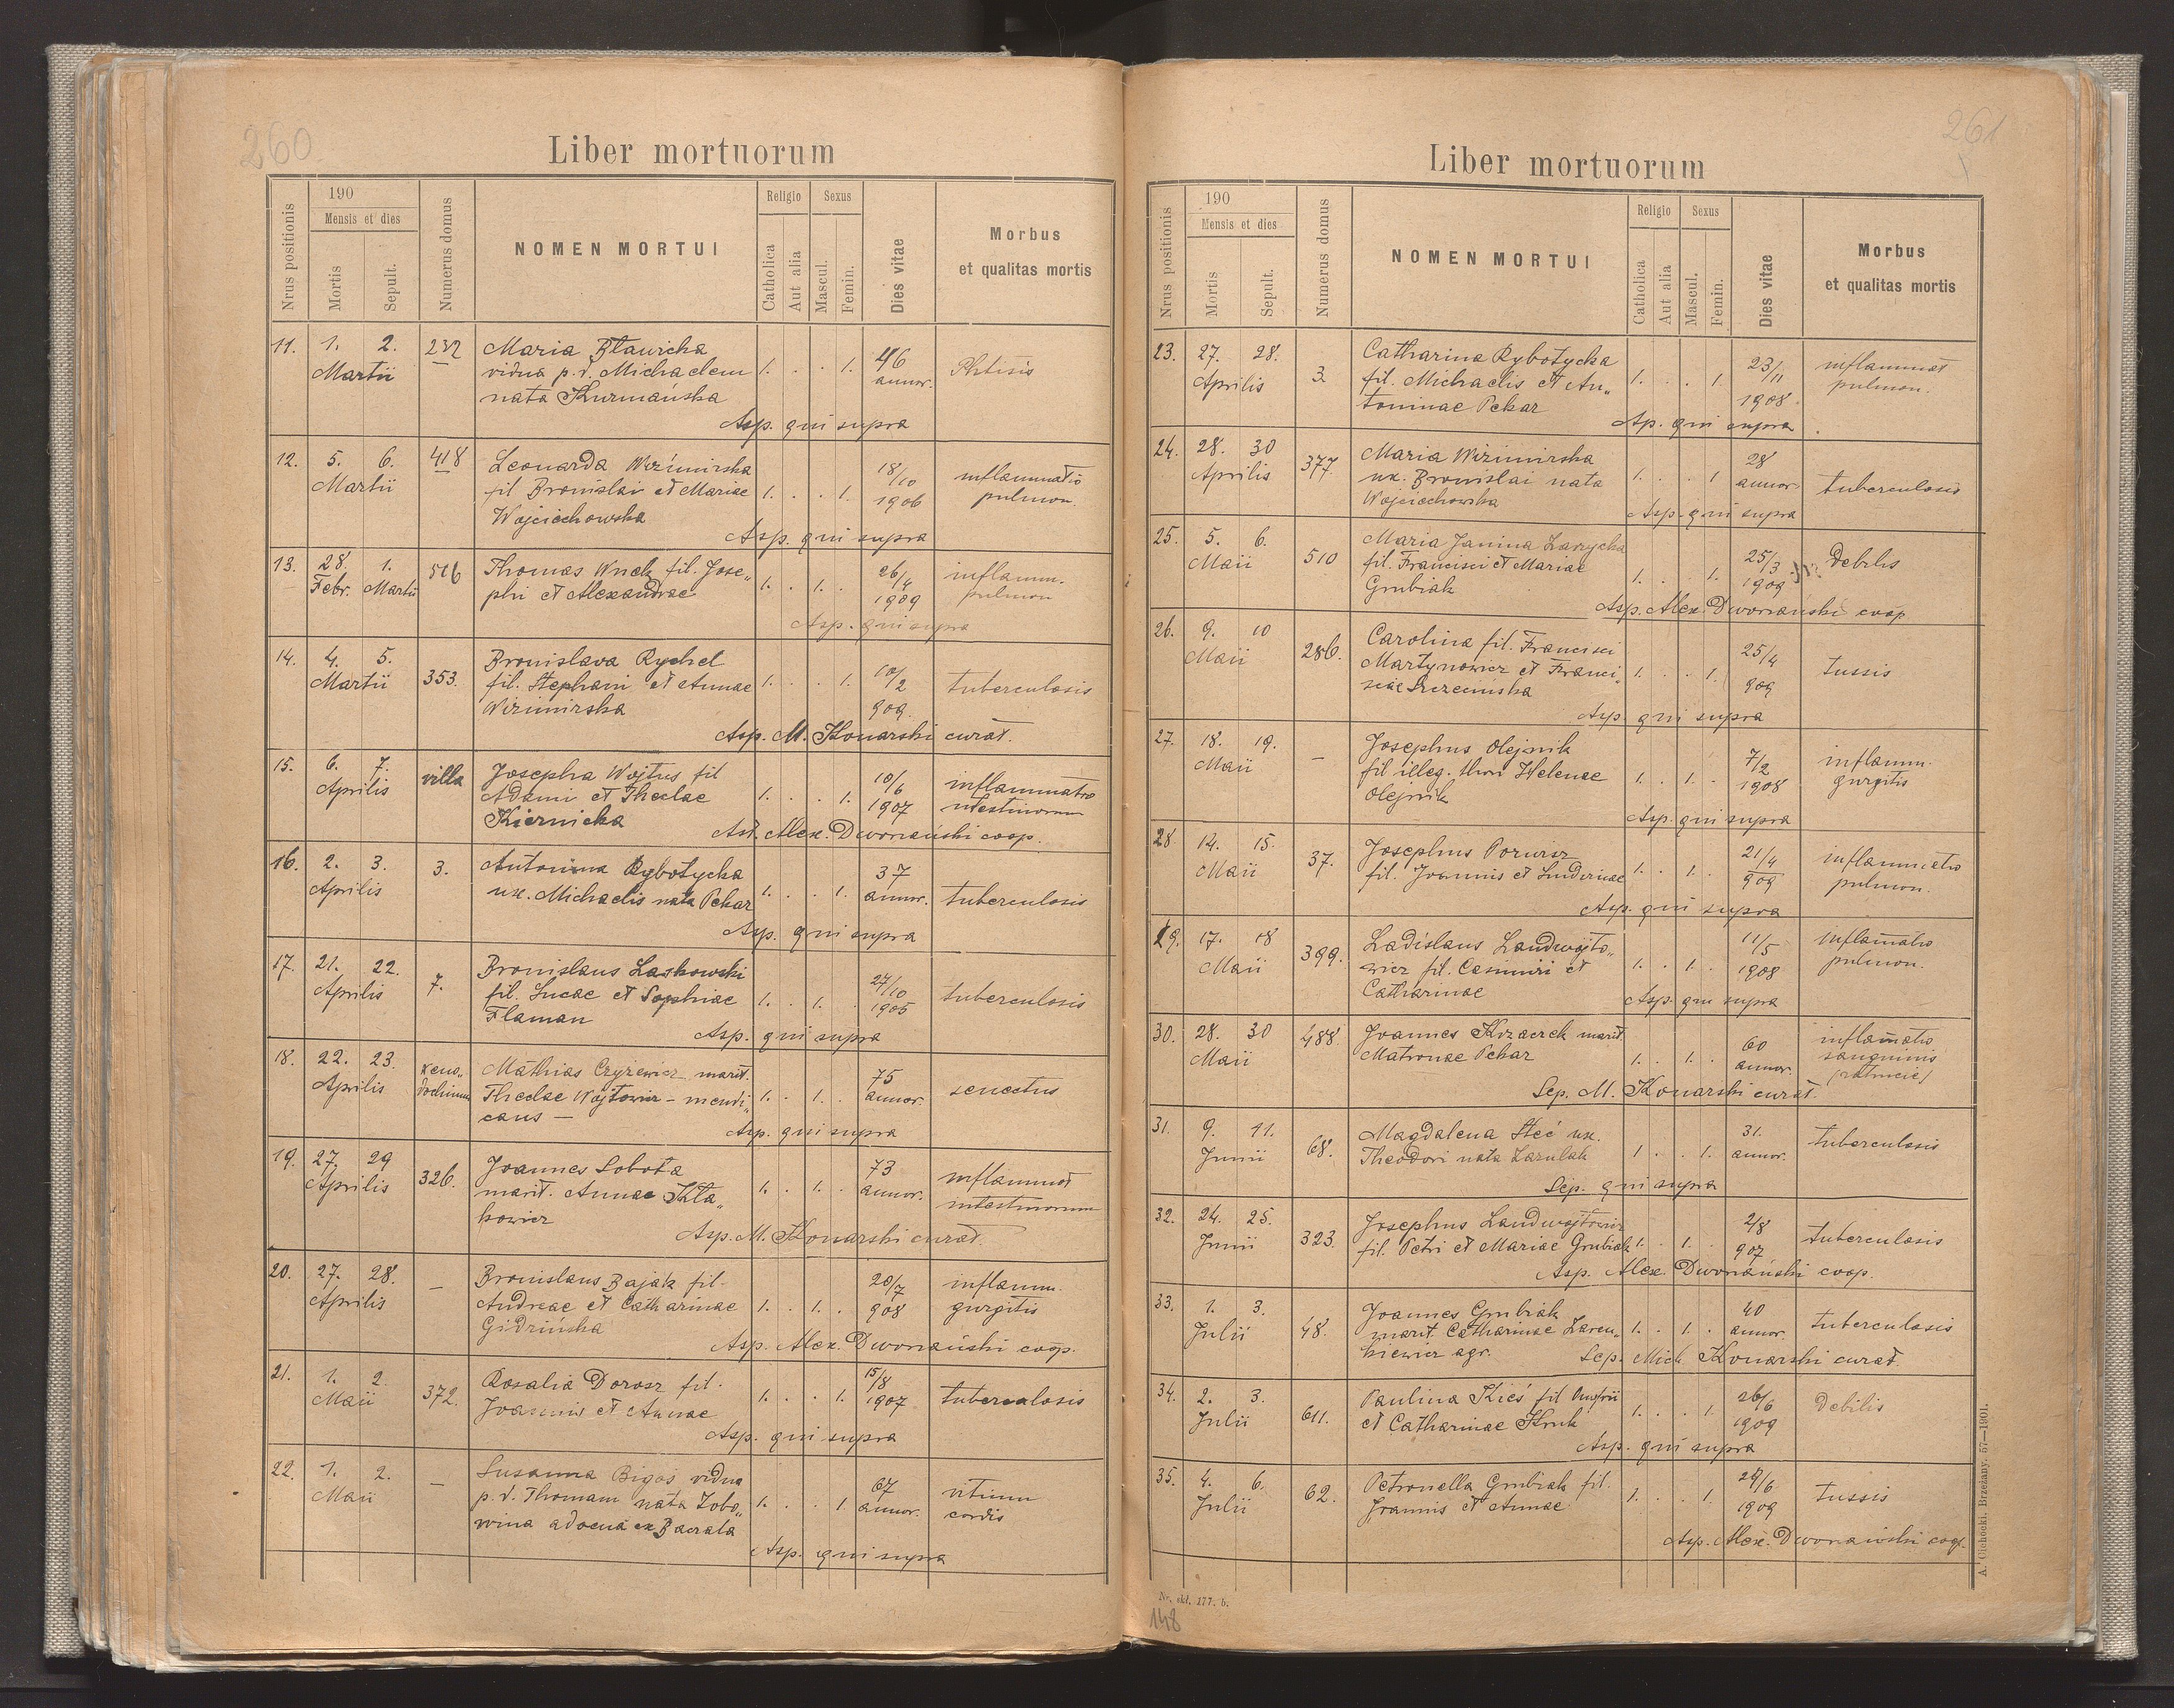 260
Liber mortuorum
Nrus positionis
190
Mensis et dies
Mortis
Sepult.
Numerus domus
NOMEN MORTUI
Religio
Catholica
Aut alia
Sexus
Mascul.
Femin.
Dies vitae
Morbus
et qualitas mortis
11. 1. 2. 232 Maria Bławicka
Martii vidua p. d. Michaelem 1. . . 1. 46 annor. Phtisis
nata Kurmańska
Asp. qui supra
12. 5. 6. 418 Leonarda Wizimirska
Martii fil Bronislai et Mariae 1. . . 1. 18/10 1906 inflammatio pulmon
Wojciechowska
Asp. qui supra
13. 28. 1. 516 Thomas Wnek fil. Jose„
Febr. Martii phi et Alexandrae 1. . 1. . 26/4 1909 inflamm. pulmon
Asp. qui supra
14. 4. 5. 353. Bronislava Rychel
Martii fil. Stephani et Annae 1. . . 1. 10/2 909. tuberculosis
Wizimirska
Asp. M. Konarski curat.
15. 6. 7. villa Josepha Wojtus fil
Aprilis Adami et Theclae 1. . . 1. 10/6 1907 inflammatio intestinorum
Kiernicka
Ast. Alex. Dworzański coop.
16. 2. 3. 3. Antonina Rybotycka
Aprilis ux. Michaelis nata Pekar 1. . . 1. 37 annor. tuberculosis
Asp. qui supra
17. 21. 22. 7. Bronislaus Laskowski
Aprilis fil. Lucae et Sophiae 1. . 1. . 27/10 1905 tuberculosis
Flaman
Asp. qui supra
18. 22. 23. Xeno„ Mathias Czyżewicz marit.
Aprilis dochium Theclae Wojtowicz – mendi„ 1. . 1. . 75 annor. senectus
cans —
Asp. qui supra
19. 27. 29 326. Joannes Sobota
Aprilis marit. Annae Kła„ 1. . 1. . 73 annor. inflammat intestinorum
kowicz
Asp. M. Konarski curat.
20. 27. 28. — Bronislaus Bajak fil.
Aprilis Andreae et Catharinae 1. . 1. . 20/7 908 inflamm. gurgitis
Gidzińska
Asp. Alex. Dworzański coop.
21. 1. 2. 372. Rosalia Dorosz fil.
Maii Joannis et Annae 1. . . 1. 15/8 1907 tuberculosis
Asp. qui supra
22. 1. 2. — Susanna Bigos vidua
Maii p. d. Thomam nata Zobo„ 1. . . 1 67 annor. vitium cordis
wina advena ex
Asp. qui supra
261
Liber mortuorum
Nrus positionis
190
Mensis et dies
Mortis
Sepult.
Numerus domus
NOMEN MORTUI
Religio
Catholica
Aut alia
Sexus
Mascul.
Femin.
Dies vitae
Morbus
et qualitas mortis
23. 27. 28. 3. Catharina Rybotycka
Aprilis fil. Michaelis et An„ 1. . . 1. 23/11 1908. inflammat pulmon.
toninae Pekar
Ap. qui supra
24. 28. 30 377. Maria Wizimirska
Aprilis ux. Bronislai nata 1. . . 1 28 annor. tuberculosis
Wojciechowska
Asp. qui supra
25. 5. 6. 510 Maria Janina Zarycka
Maii fil. Francisci et Mariae 1. . . 1. 25/3 1909 Debilis
Grubiak
Asp. Alex. Dworzański coop
26. 9. 10 286. Carolina fil. Francisci
Maii Martynowicz et Franci„ 1. . . 1. 25/4 909 tussis
scae
Asp. qui supra
27. 18. 19. — Josephus Olejnik
Maii fil illeg. thori Helenae 1. . 1. . 7/2 1908 inflamm. gurgitis
Olejnik
Asp. qui supra
28 14. 15. 37. Josephus Porursz
Maii fil. Joannis et 1. . 1. . 21/4 909 inflammatio pulmon.
Asp. qui supra
29. 17. 18 399. Ladislaus Landwójto„
Maii wicz fil. Casimiri et 1. . 1. . 11/5 1908 inflamatio pulmon.
Catharinae
Asp. qui supra
30. 28. 30 488. Joannes Krzaczek marit.
Maii Matronae Pekar 1. . 1. . 60 annor. inflamatio sanguinis
Sep. M. Konarski curat.
31. 9. 11. 68. Magdalena Steć ux.
Junii Theodori nata Zazulak 1 . . 1. 31. annor. tuberculosis
Sep. qui supra
32. 24. 25. 323. Josephus Landwójtowicz
Junii fil. Petri et Mariae Grubiak 1. . 1. . 2/8 907 tuberculosis
Asp. Alex. Dworzański coop.
33. 1. 3. 48. Joannes Grubiak
Julii marit. Catharinae Laren„ 1. . 1. . 40 annor. tuberculosis
kiewicz agr. Sep. Mich Konarski curat.
34. 2. 3. 611. Paulina Kieś fil Onufrii
Julii et Catharinae Kruk 1. . . 1. 26/6 1909 Debilis
Asp. qui supra
35. 4. 6. 62. Petronella Grubiak fil.
Julii Joannis et Annae 1. . . 1. 29/6 1909 tussis
Asp. Alex. Dworzański coop.
Nr. skł. 177. b.
148
A. Cichocki. Brzeżany. 57—1901.